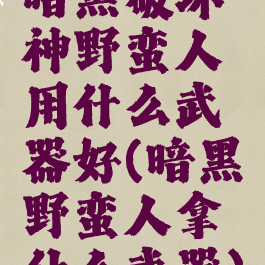 暗黑破坏
神野蛮人
用什么武
器好(暗黑
野蛮人拿
什么武器)